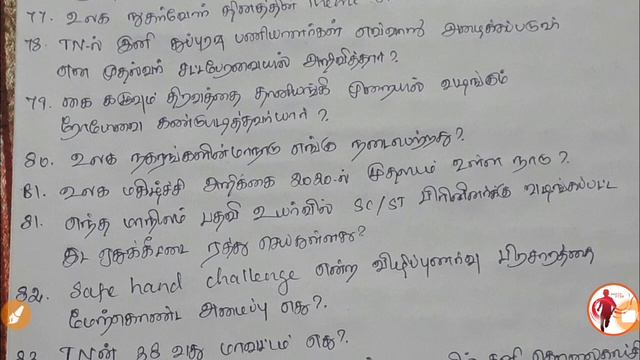 77. உலக நுகர்வோர் தினத்தின் Theme
78. TN-ல் இனி துப்புரவு பணியாளர்கள் எவ்வாறு அழைக்கப்படுவர்
என முதல்வர் சட்டபேரவையில் அறிவித்தார்?
79. கை கழுவும் திரவத்தை தானியங்கி முறையில் வழங்கும்
ரோபோவை கண்டுபிடித்தவர் யார்?
80. உலக நகரங்களின் மாநாடு எங்கு நடைபெற்றது?
81. உலக மகிழ்ச்சி அறிக்கை 2020-ல் முதலிடம் உள்ள நாடு?
81. எந்த மாநிலம் பதவி உயர்வில் SC/ST பிரிவினர்க்கு வழங்கப்பட்ட
இட ஒதுக்கீட்டை ரத்து செய்துள்ளது?
82. Safe hand challenge என்ற விழிப்புணர்வு பிரசாரத்தை
மேற்கொண்ட அமைப்பு எது?.
83. TNன் 38 வது மாவட்டம் எது?